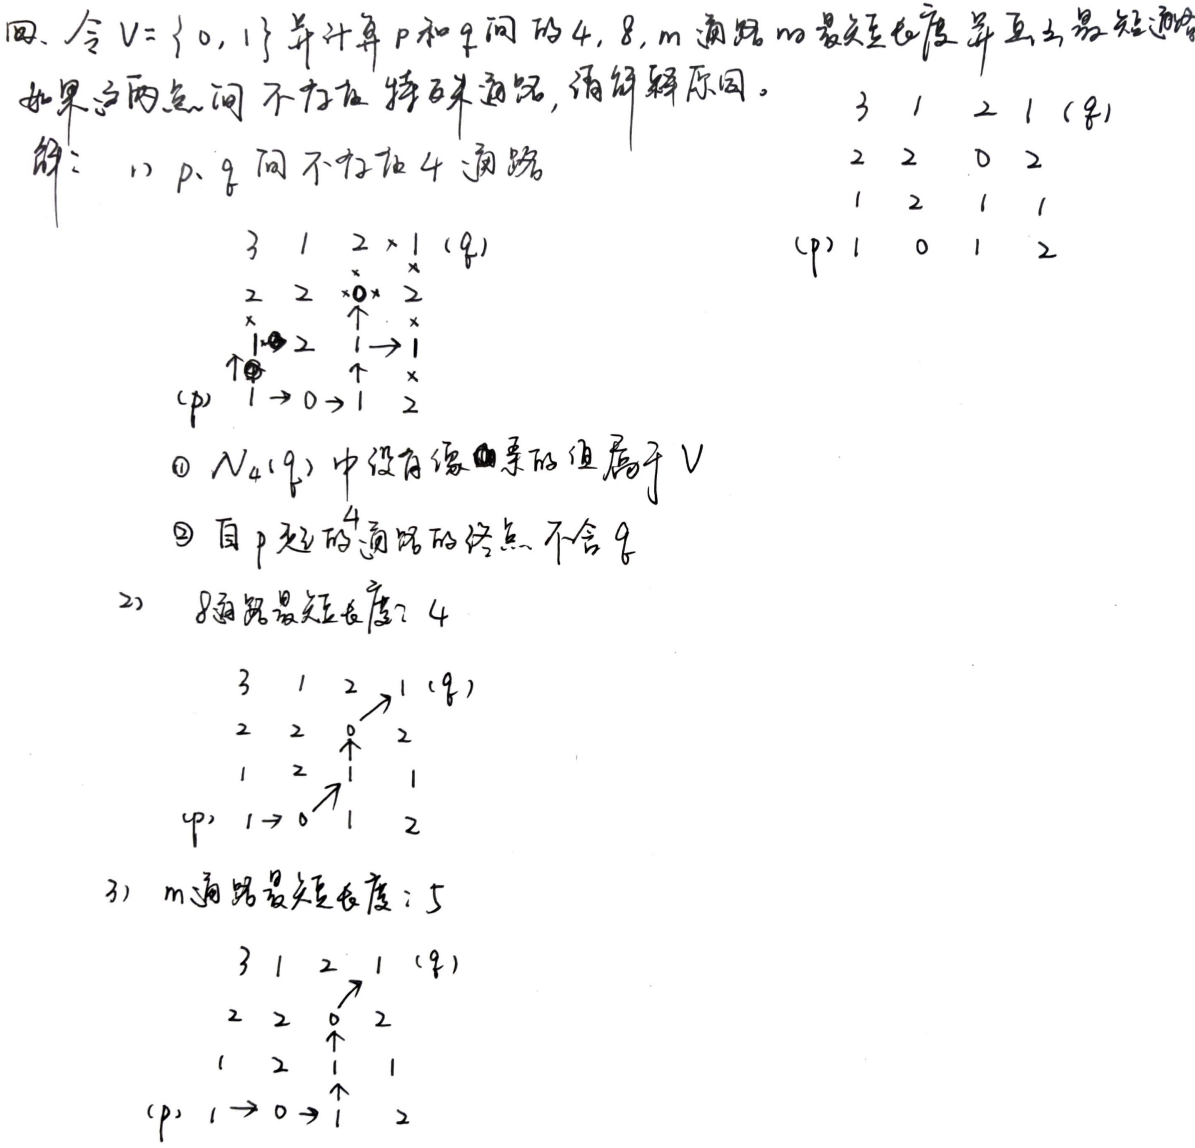 四、令 V={0,1} 并计算 p 和 q 间的 4, 8, m 通路的最短长度并画出最短通路
如果这两点间不存在特殊通路,请解释原因。
3 1 2 1 (q)
2 2 0 2
1 2 1 1
(p) 1 0 1 2
解: 1) p、q 间不存在 4 通路
3 1 2 × 1 (q)
× ×
2 2 ×0× 2
× ↑ ×
1 2 1 → 1
↑ ↑ ×
(p) 1 → 0 → 1 2
① N4(q) 中没有像素的值属于 V
② 自 p 起的4通路的终点不含 q
2) 8通路最短长度: 4
3 1 2 ↗ 1 (q)
2 2 0 2
↑
1 2 1 1
↗
(p) 1 → 0 1 2
3) m通路最短长度: 5
3 1 2 1 (q)
↗
2 2 0 2
↑
1 2 1 1
↑
(p) 1 → 0 → 1 2